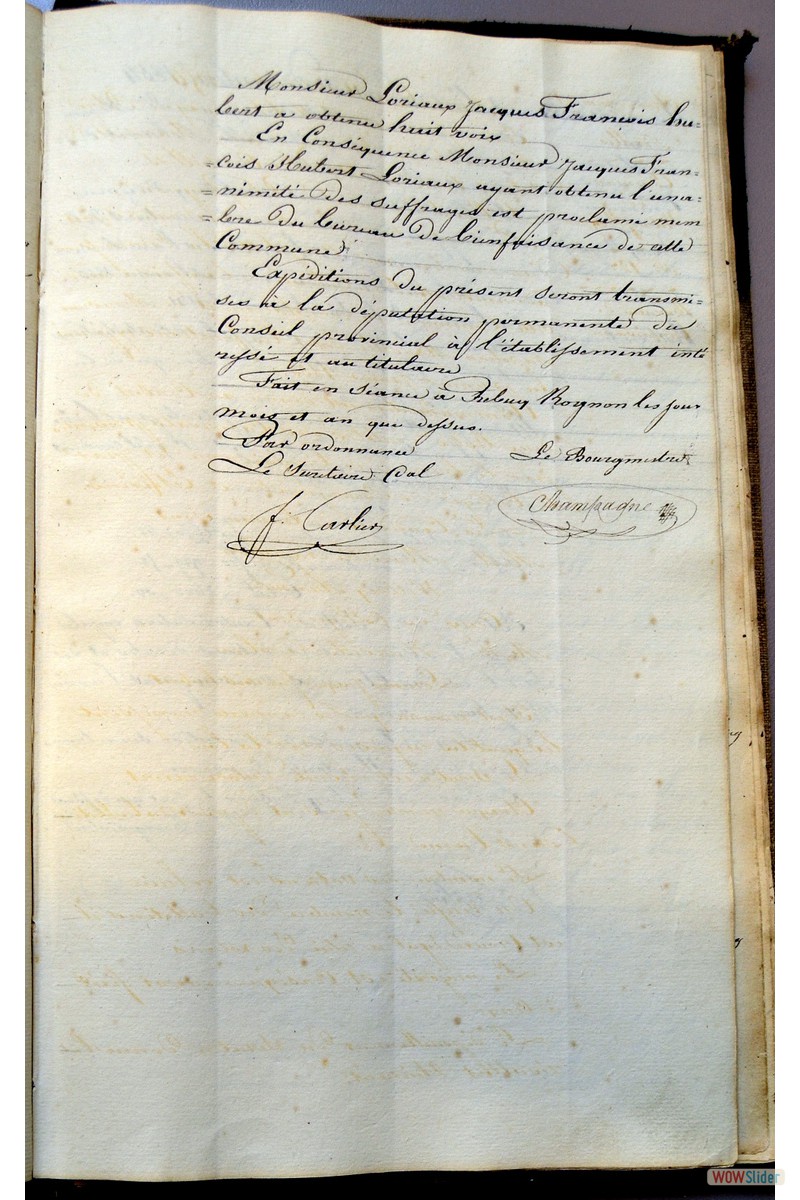 Monsieur Loriaux Jacques François hu=
bert a obtenu huit voix
En Conséquence Monsieur Jacques Fran=
=cois Hubert Loriaux ayant obtenu l'una=
=nimité des suffrages est proclamé mem
=bre du bureau de bienfaisance de cette
Commune
Expéditions du présent seront transmi=
ses à la députation permanente du
Conseil provincial à l'établissement inté
ressé et au titulaire
Fait en séance à Bebucq Rognon les jour
mois et an que dessus.
Par ordonnance
Le Bourgmestre
Le Secretaire Cal
f. Carlier
Champagne
WOWSlider